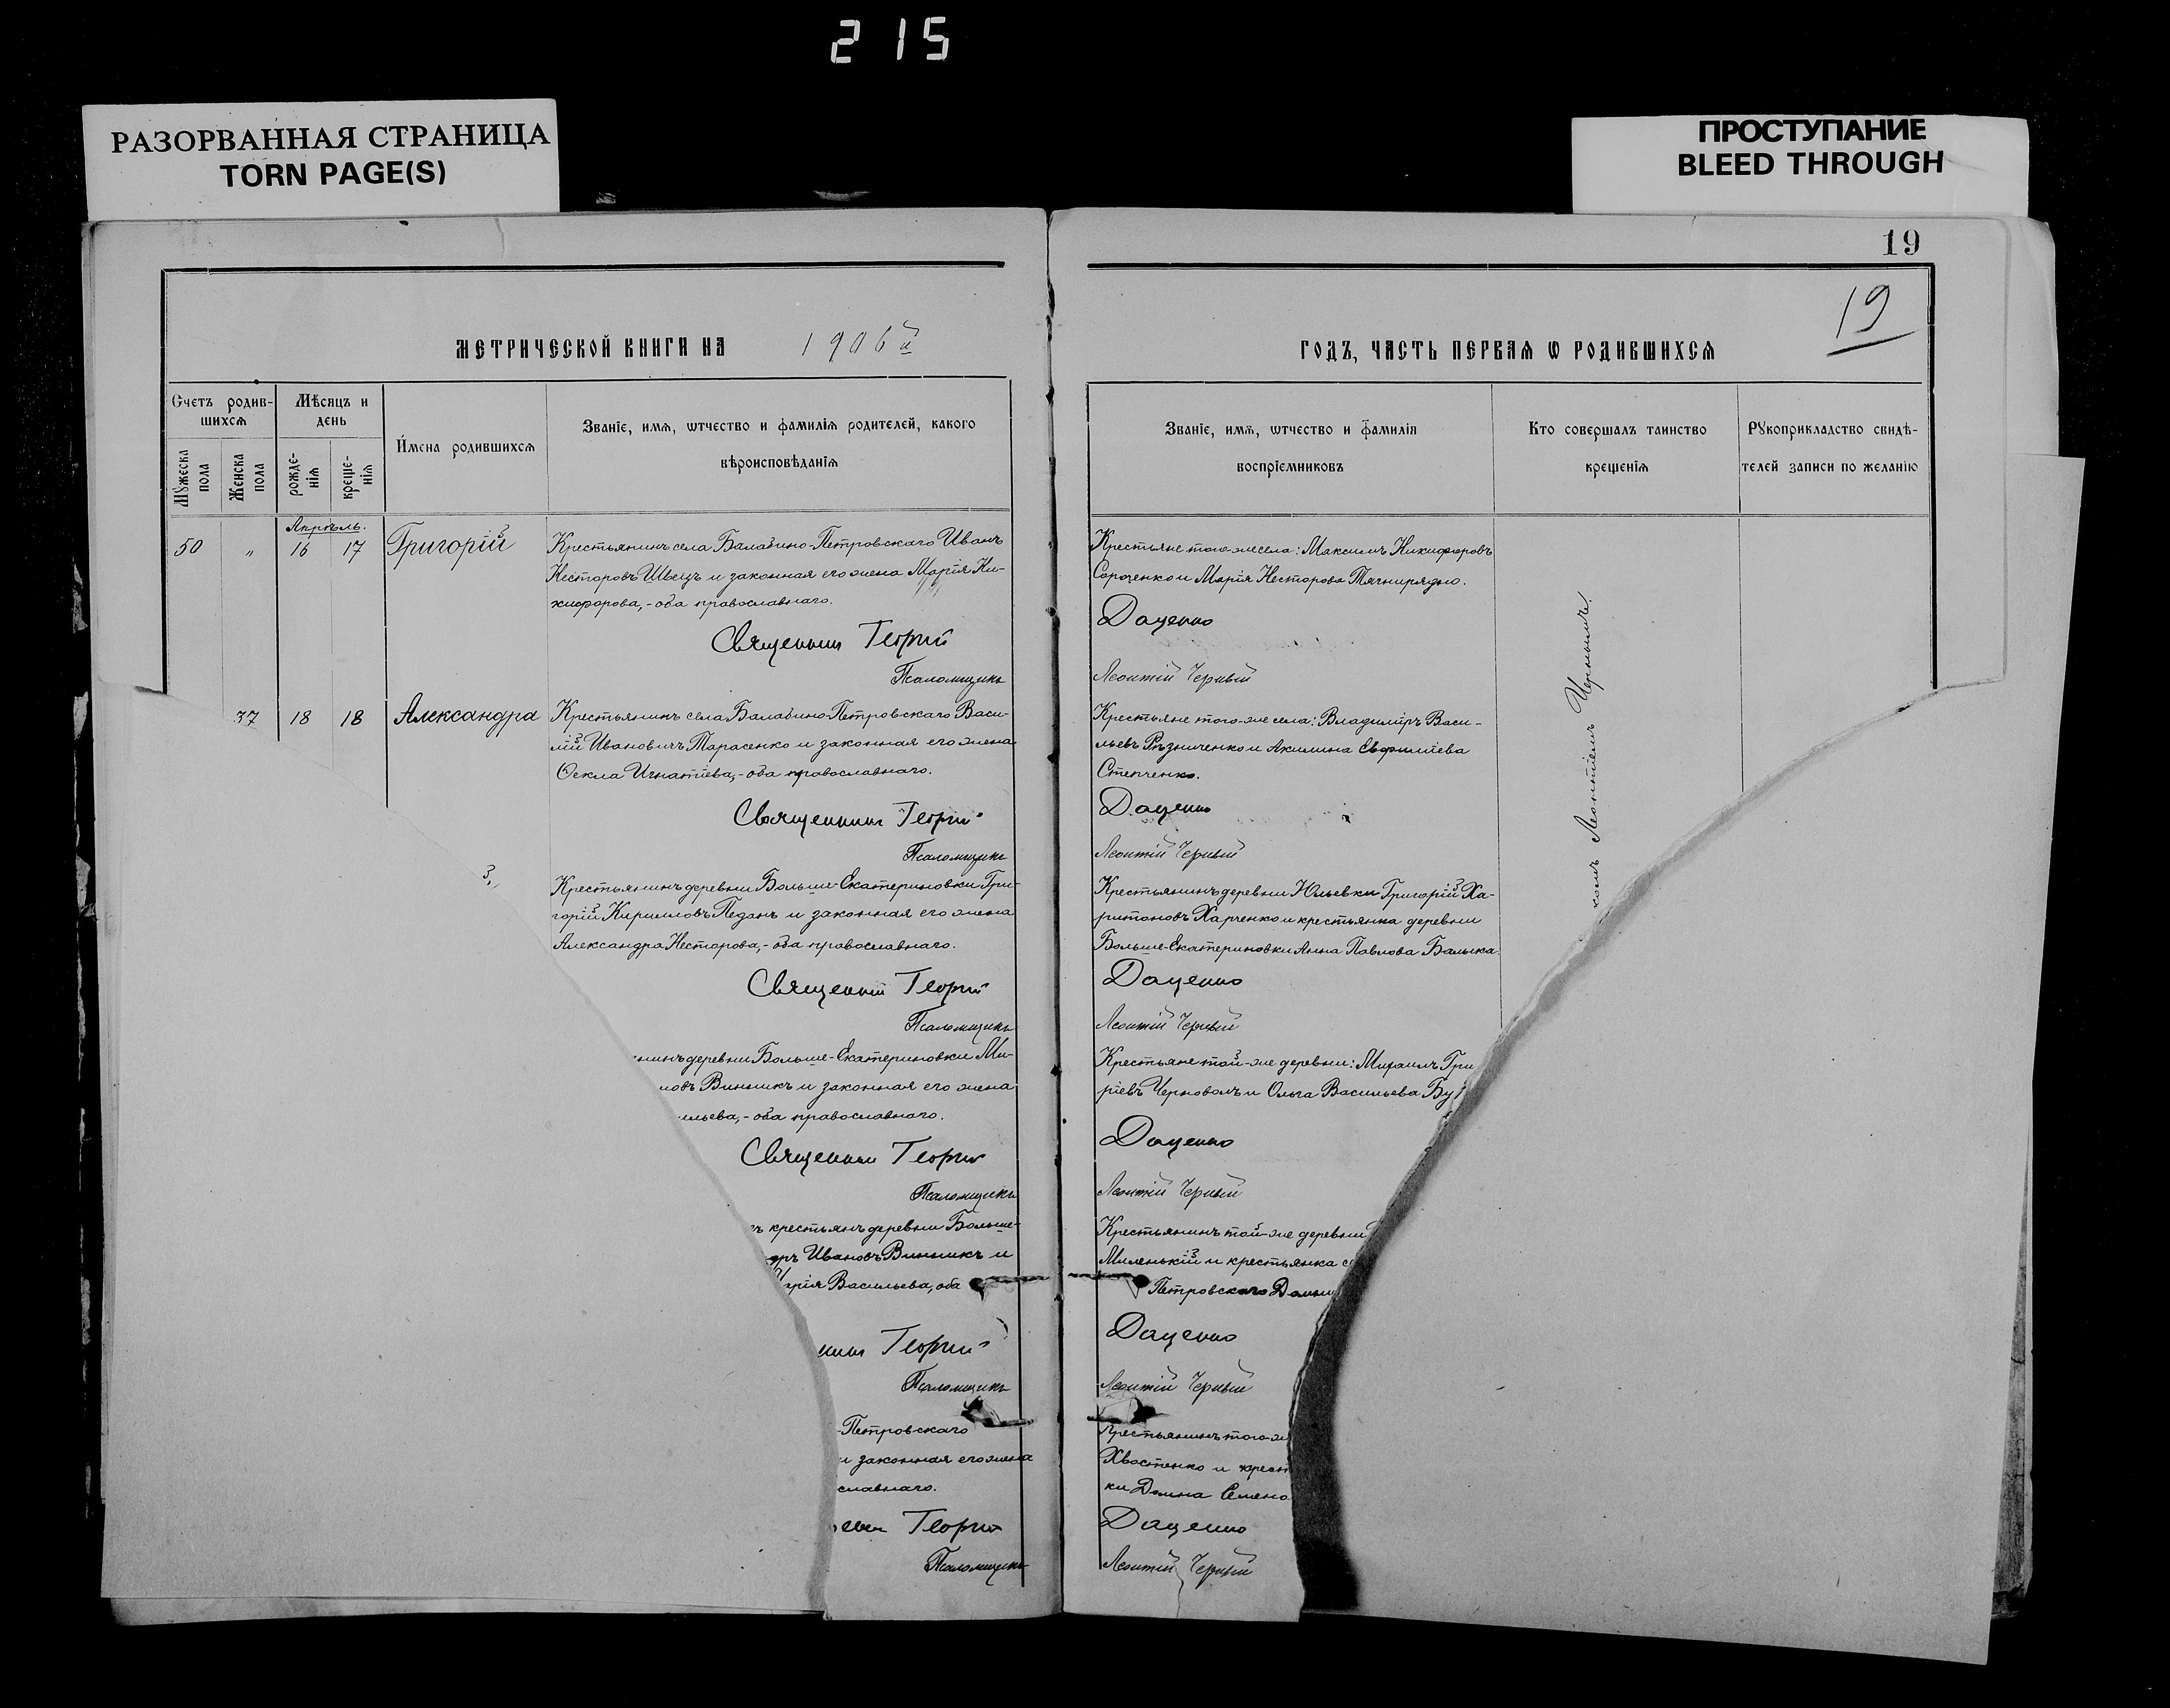 215
РАЗОРВАННАЯ СТРАНИЦА
TORN PAGE(S)
ПРОСТУПАНИЕ
BLEED THROUGH
19
19
МЕТРИЧЕСКОЙ КНИГИ НА 1906й
ГОДЪ, ЧАСТЬ ПЕРВАЯ Ѡ РОДИВШИХСЯ
Счетъ родив-
шихсѧ
Мѣсяцъ и
день
Мꙋжеска
пола
Женска
пола
рожде-
нїѧ
креще-
нїѧ
Имена родившихсѧ
Званїе, имѧ, ѡтчество и фамилїѧ родителей, какого
вѣроисповѣданїѧ
Званїе, имѧ, ѡтчество и фамилїѧ
воспрїемниковъ
Кто совершалъ таинство
крещенїѧ
Рꙋкоприкладство свидѣ-
телей записи по желанїю
Апрѣль.
50 " 16 17 Григорій
Крестьянинъ села Балабино-Петровскаго Иванъ
Несторовъ Швецъ и законная его жена Марія Ни-
кифорова,- оба православнаго.
Священникъ Георгій
Псаломщикъ
Крестьяне того-же села: Максимъ Никифоровъ
Сороченко и Марія Несторова Тягнирядно.
Даценко
Леонтій Черный
37 18 18 Александра
Крестьянинъ села Балабино-Петровскаго Васи-
лій Ивановичъ Тарасенко и законная его жена
Ѳекла Игнатіева,- оба православнаго.
Священникъ Георгій
Псаломщикъ
Крестьяне того-же села: Владиміръ Васи-
льевъ Рѣзниченко и Акилина Евфиміева
Степченко.
Даценко
Леонтій Черный
Крестьянинъ деревни Больше-Екатериновки Гри-
горій Кирилловъ Педанъ и законная его жена
Александра Несторова,- оба православнаго.
Священникъ Георгій
Псаломщикъ
Крестьянинъ деревни Юльевки Григорій Ха-
ритоновъ Харченко и крестьянка деревни
Больше-Екатериновки Анна Павлова Балыка.
Даценко
Леонтій Черный
нинъ деревни Больше-Екатериновки Ми-
ловъ Винникъ и законная его жена
ильева,- оба православнаго.
Священникъ Георгій
Псаломщикъ
Крестьяне той-же деревни: Михаилъ Гри
ріевъ Черноволъ и Ольга Васильева Бу
Даценко
Леонтій Черный
крестьянъ деревни Больше-
дръ Ивановъ Винникъ и
арія Васильева, оба
никъ Георгій
Псаломщикъ
Крестьянинъ той-же деревни
Миленькій и крестьянка с
Петровскаго Домни
Даценко
Леонтій Черный
-Петровскаго
и законная его жена
славнаго.
Георгій
Псаломщикъ
Крестьянинъ того-ж
Хвостенко и крест
ки Домна Семено
Даценко
Леонтій Черный
комъ Леонтіемъ Чернымъ.